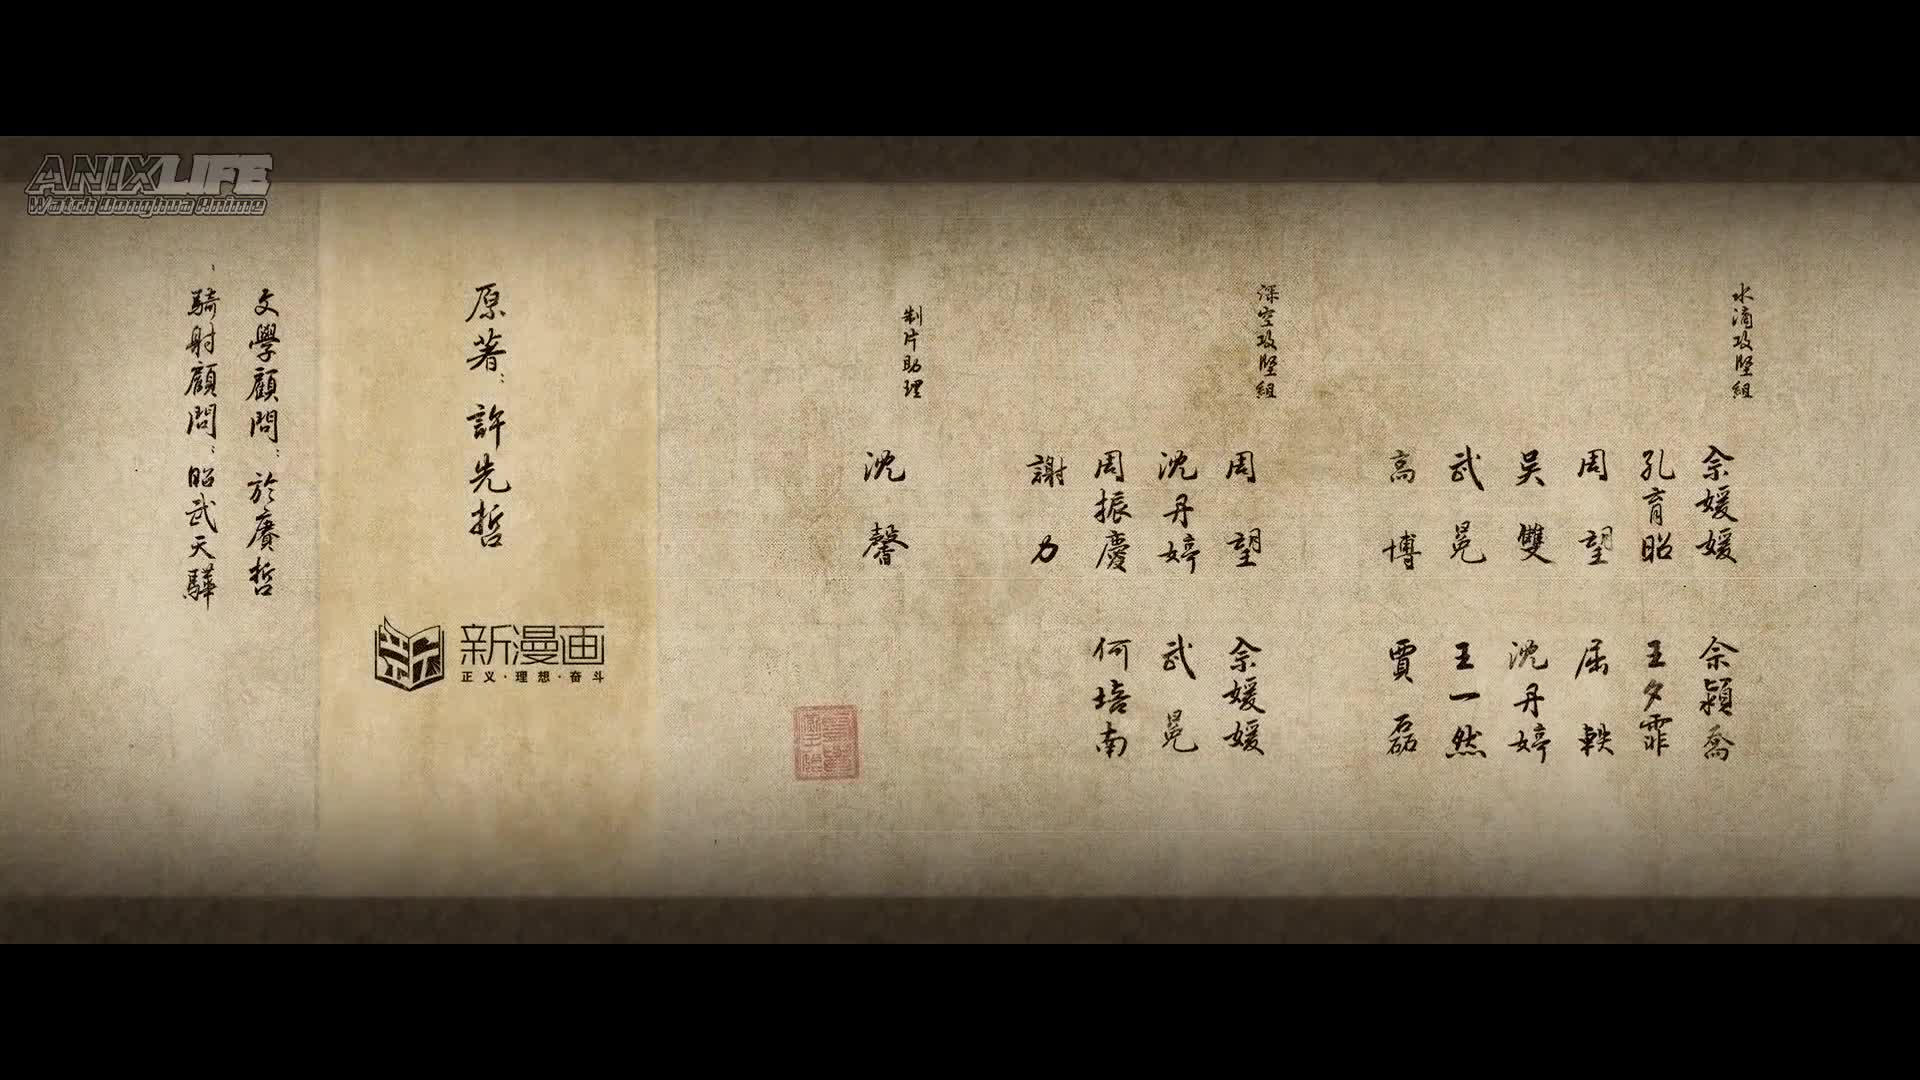 ANIXLIFE
Watch Donghua Anime
水滴攻堅組
佘媛媛 佘潁喬
孔育昭 王夕霏
周望 屈軼
吳雙 沈丹婷
武冕 王一然
高博 賈磊
深空攻堅組
周望 佘媛媛
沈丹婷 武冕
周振慶 何培南
謝力
制片助理
沈馨
原著:許先哲
新漫画
正义·理想·奋斗
文學顧問:於賡哲
騎射顧問:昭武天驊